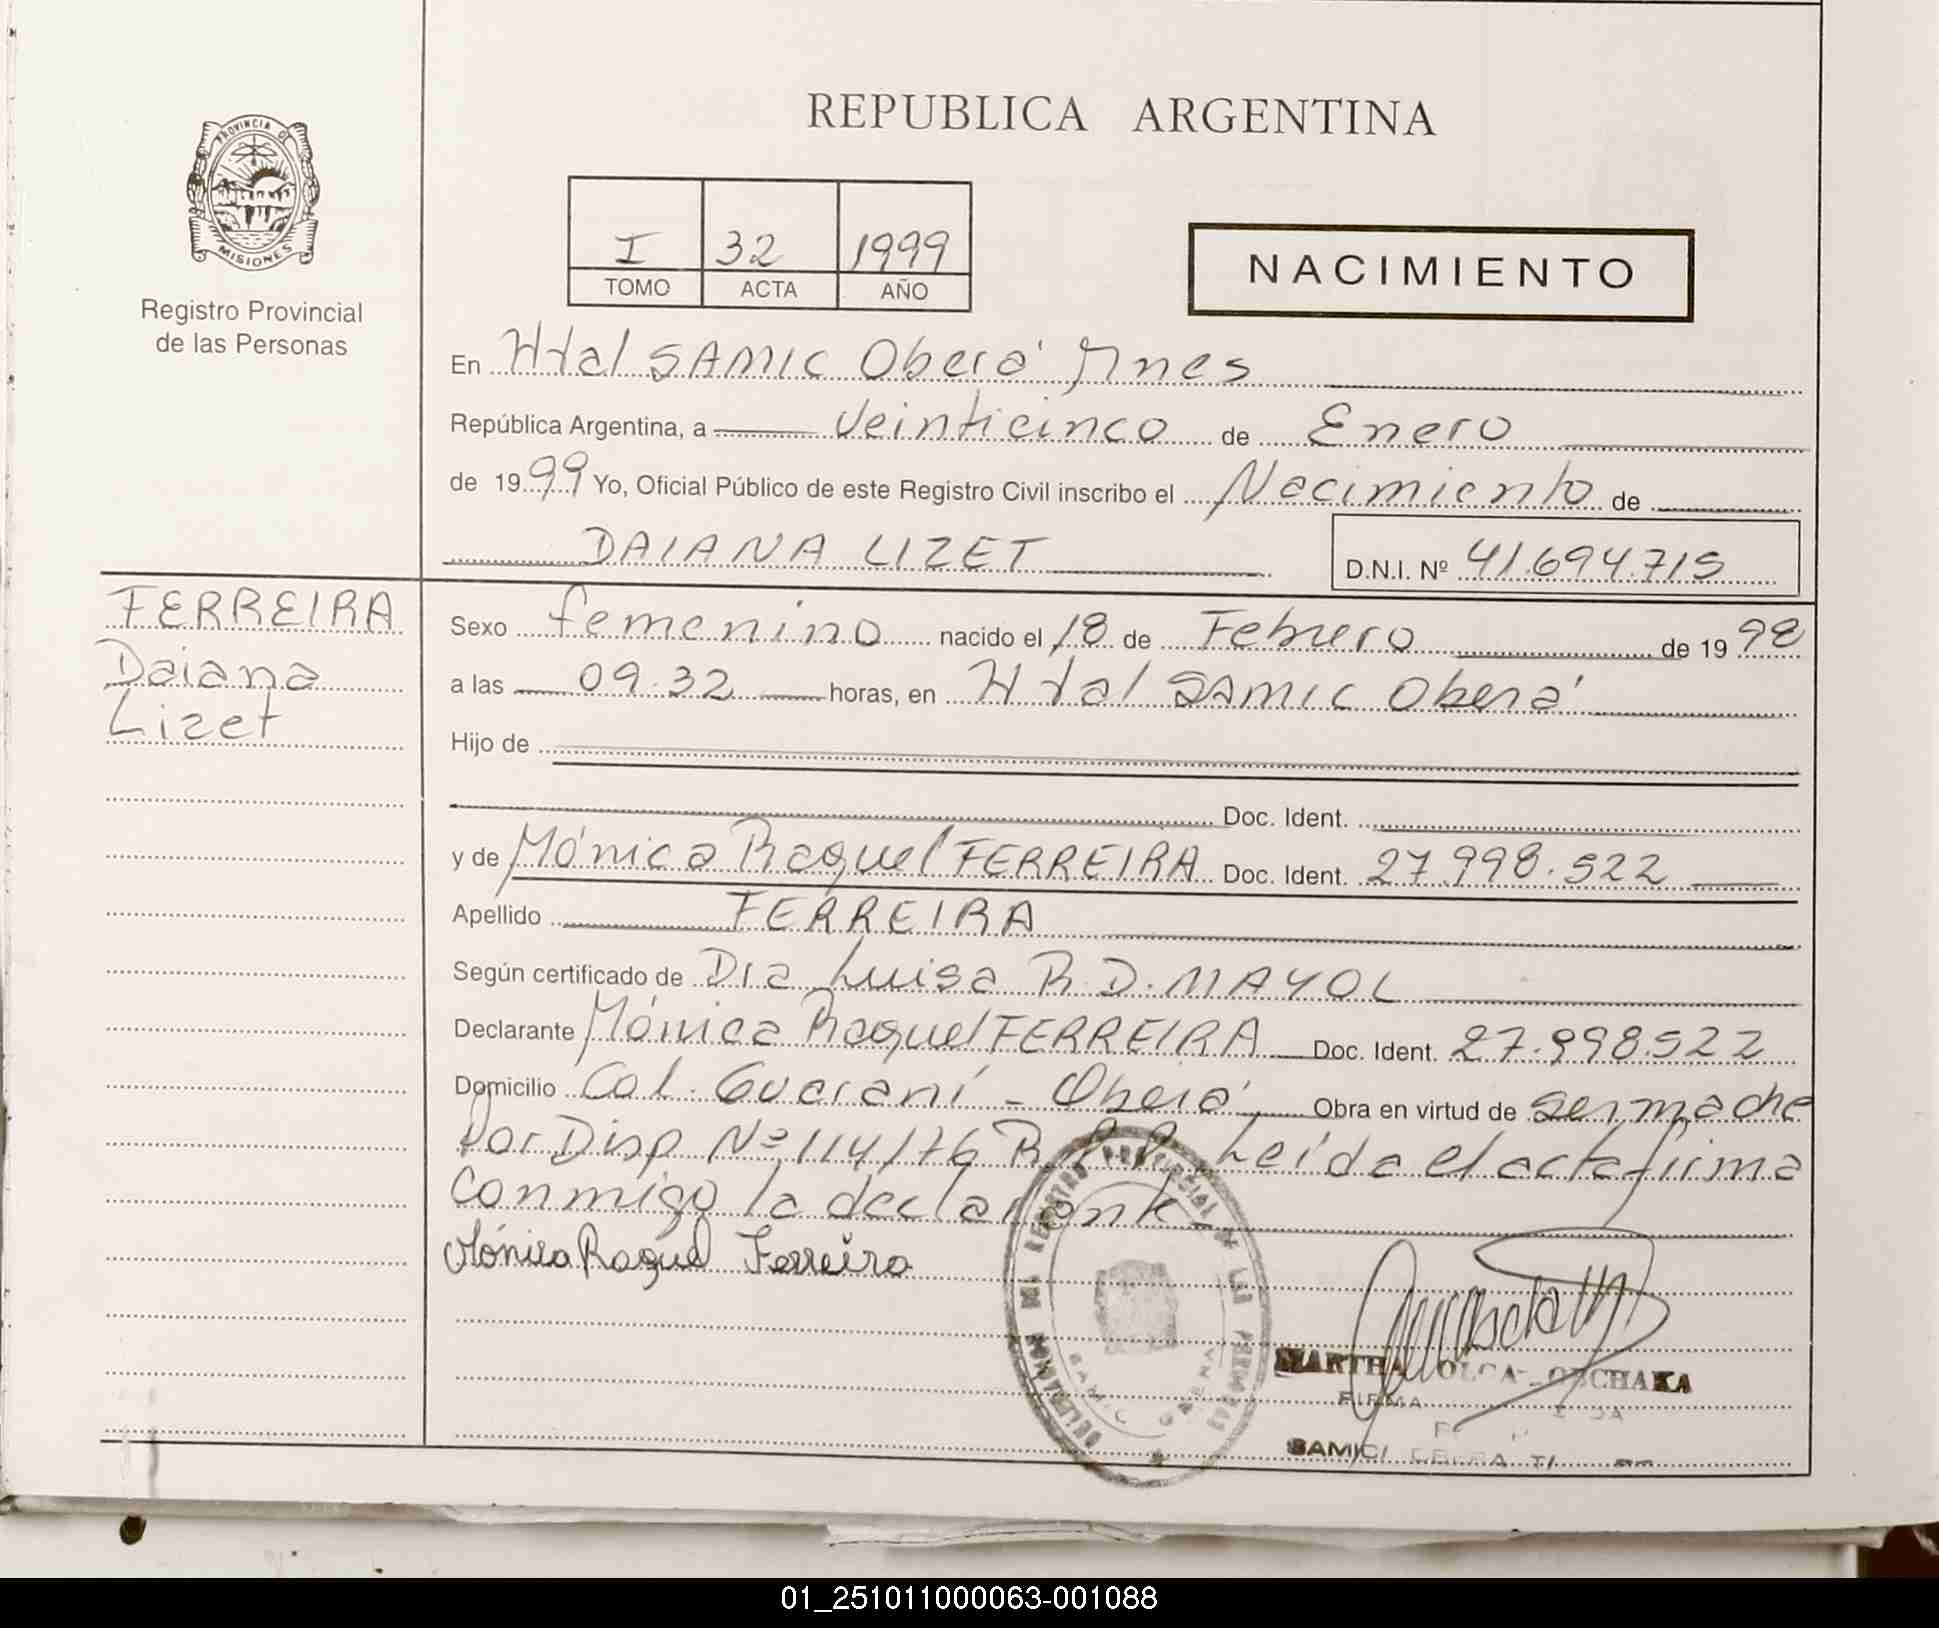 REPUBLICA ARGENTINA
PROVINCIA DE
MISIONES
Registro Provincial
de las Personas
I 32 1999
TOMO ACTA AÑO
NACIMIENTO
En Htal SAMIC Oberá Mnes
República Argentina, a Veinticinco de Enero
de 1999 Yo, Oficial Público de este Registro Civil inscribo el Nacimiento de
DAIANA LIZET D.N.I. Nº 41.694.715
FERREIRA
Daiana
Lizet
Sexo femenino nacido el 18 de Febrero de 1998
a las 09.32 horas, en Htal SAMIC Oberá
Hijo de
Doc. Ident.
y de Mónica Raquel FERREIRA Doc. Ident. 27.998.522
Apellido FERREIRA
Según certificado de Dra Luisa R.D. MAYOL
Declarante Mónica Raquel FERREIRA Doc. Ident. 27.998.522
Domicilio Col. Guaraní - Oberá Obra en virtud de ser madre
Por Disp Nº 114/76 R.P.P. Leída el acta firma
conmigo la declarante
Mónica Raquel Ferreira
DELEGACION DEL REGISTRO PROVINCIAL DE LAS PERSONAS
MARTHA OLGA
FIRMA
SAMIC
01_251011000063-001088